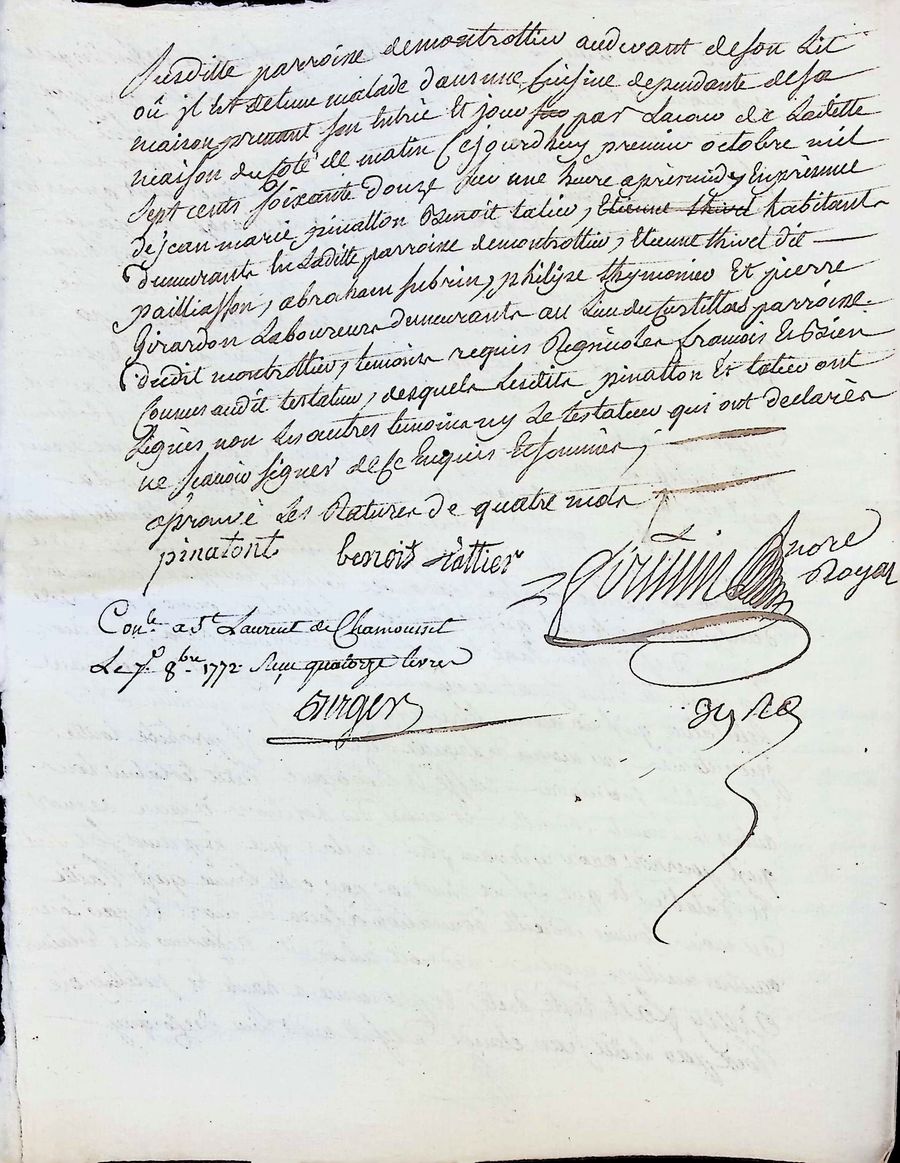 Susditte parroisse de montrottier audevant de son Lit
où il est detenu malade dans une Cuisine dependante de sa
maison prenant son Entrée Et jour par La cour de Laditte
maison du coté de matin Cejourdhuy premier octobre mil
sept cents soixante douze sur une heure aprèsmidy En presence
de jean marie pinatton Benoit tatier, Etienne thivel habitants
demeurants En Laditte parroisse de montrottier, Etienne thivel dit
pailliasson, abraham subrin, philipe thymonier Et pierre
Girardon Laboureurs demeurants au Lieu du Castillas parroisse
dudit montrottier, temoins requis Regnicoles francois Et Bien
Connus audit testateur, desquels Lesdits pinatton Et tatier ont
signés non Les autres temoins ny Le testateur qui ont declarés
ne scavoir signer de ce Enquis Et sommés,
aprouvé Les Ratures de quatre mots
pinatont benoit tattier
nore Royal
Con.le a S.t Laurent de Chamousset
Le 7.e 8.bre 1772. Reçu quatorze livres